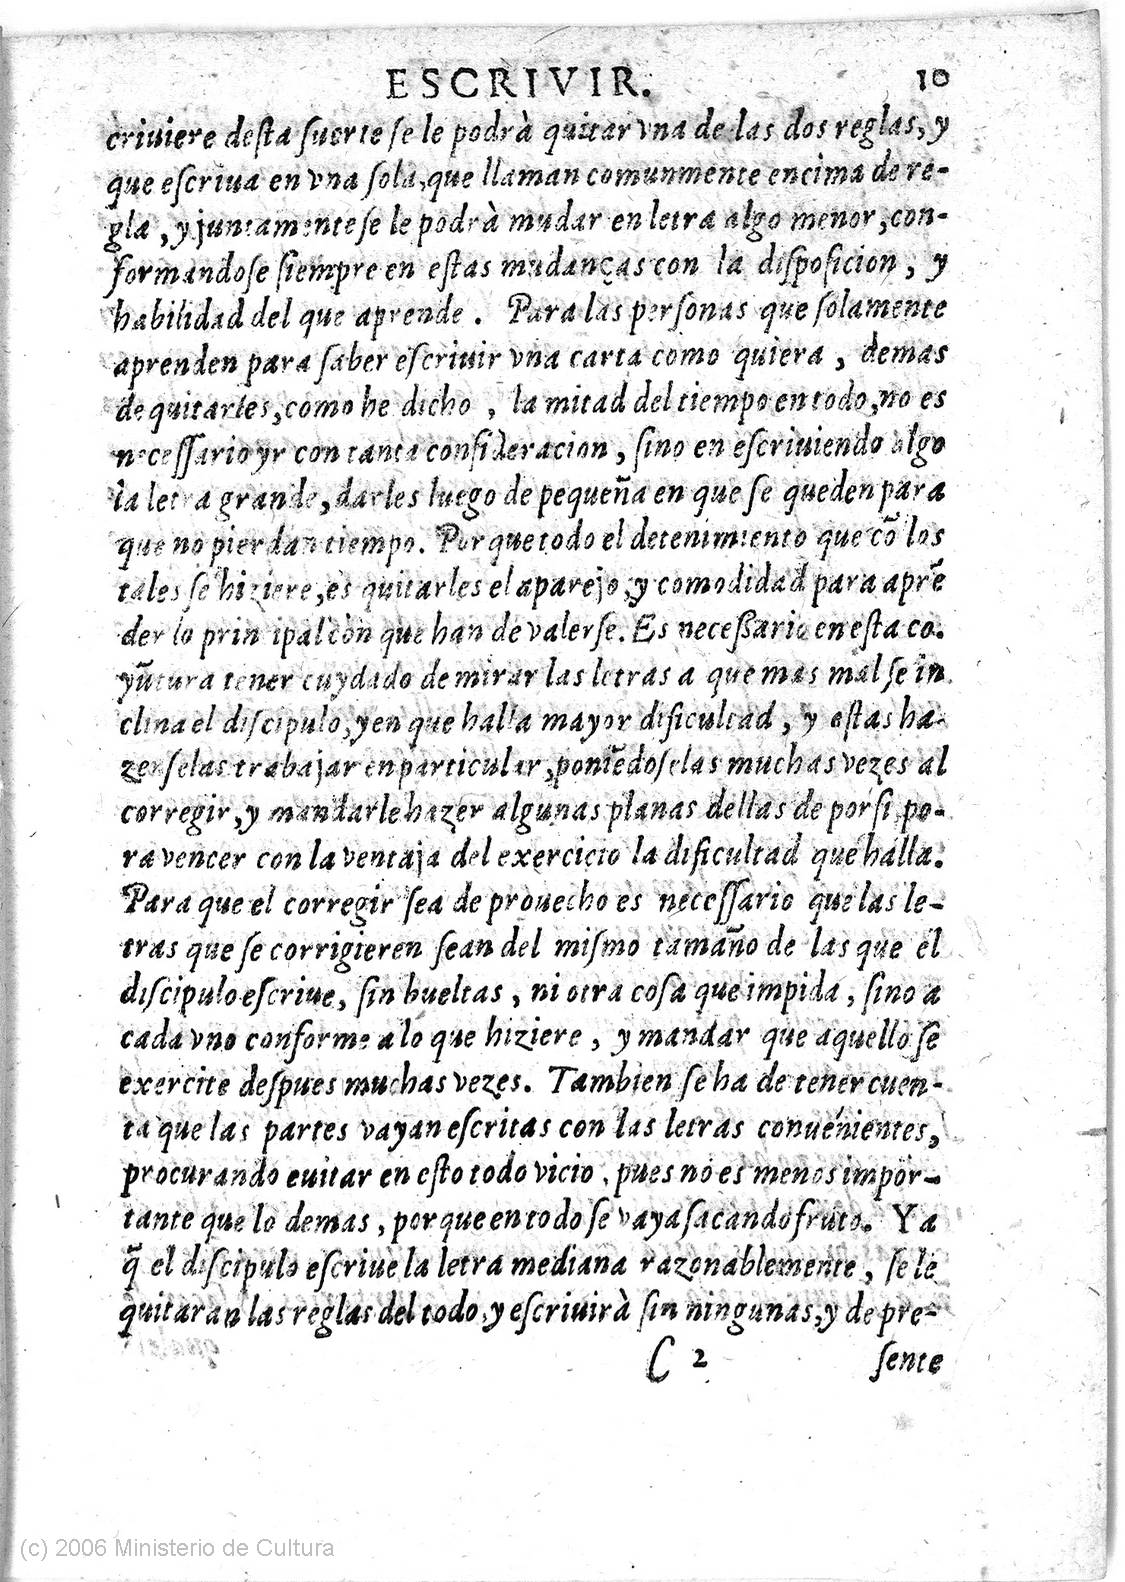 ESCRIVIR. 10
criuiere desta suerte se le podrà quitar vna de las dos reglas, y
que escriua en vna sola, que llaman comunmente encima de re-
gla, y juntamente se le podrà mudar en letra algo menor, con-
formandose siempre en estas mudanças con la disposicion, y
habilidad del que aprende. Para las personas que solamente
aprenden para saber escriuir vna carta como quiera, demas
de quitarles, como he dicho, la mitad del tiempo en todo, no es
necessario yr con tanta consideracion, sino en escriuiendo algo
la letra grande, darles luego de pequeña en que se queden para
que no pierdan tiempo. Porque todo el detenimiento que cõ los
tales se hiziere, es quitarles el aparejo, y comodidad para aprẽ
der lo principal con que han de valerse. Es necessario en esta co.
yũtura tener cuydado de mirar las letras a que mas mal se in
clina el discipulo, y en que halla mayor dificultad, y estas ha-
zerselas trabajar en particular, poniẽdoselas muchas vezes al
corregir, y mandarle hazer algunas planas dellas de por si, po-
ra vencer con la ventaja del exercicio la dificultad que halla.
Para que el corregir sea de prouecho es necessario que las le-
tras que se corrigieren sean del mismo tamaño de las que el
discipulo escriue, sin bueltas, ni otra cosa que impida, sino a
cada vno conforme a lo que hiziere, y mandar que aquello se
exercite despues muchas vezes. Tambien se ha de tener cuen-
ta que las partes vayan escritas con las letras conuenientes,
procurando euitar en esto todo vicio, pues no es menos impor-
tante que lo demas, porque en todo se vaya sacando fruto. Ya
q̃ el discipulo escriue la letra mediana razonablemente, se le
quitaran las reglas del todo, y escriuirà sin ningunas, y de pre-
C 2 sente
(c) 2006 Ministerio de Cultura